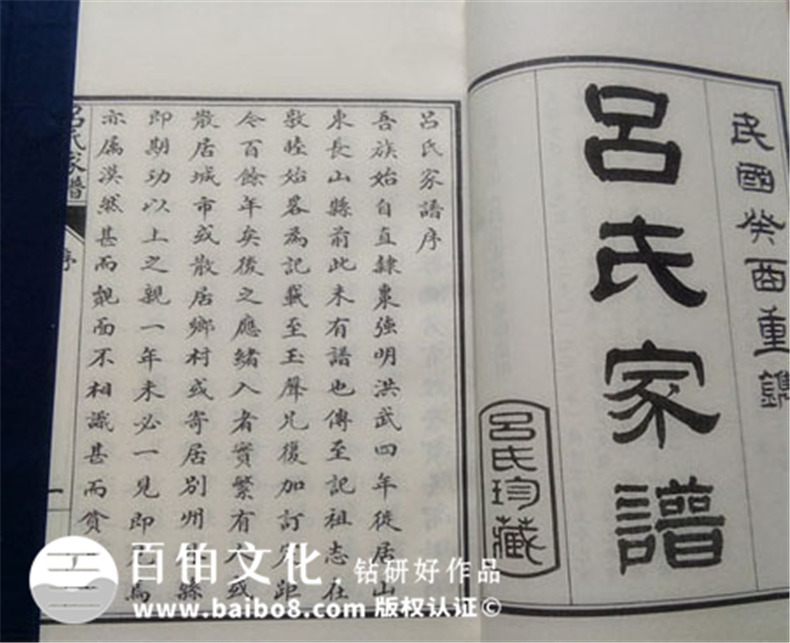 民國癸酉重鐫
呂氏家譜
呂氏珍藏
呂氏家譜序
吾族始自直隸棗強明洪武四年徙居山
東長山縣前此未有譜也傳至記祖志在
敦睦始畧為記載至玉聲兄復加訂定距
今百餘年矣後之應緒入者實繁有或
散居城市或散居鄉村或寄居別州縣
即期功以上之親一年未必一見即焉
亦屬漠然甚而覿面不相識甚而貧
呂氏家譜
序
一
百铂文化.钻研好作品
www.baibo8.com 版权认证©